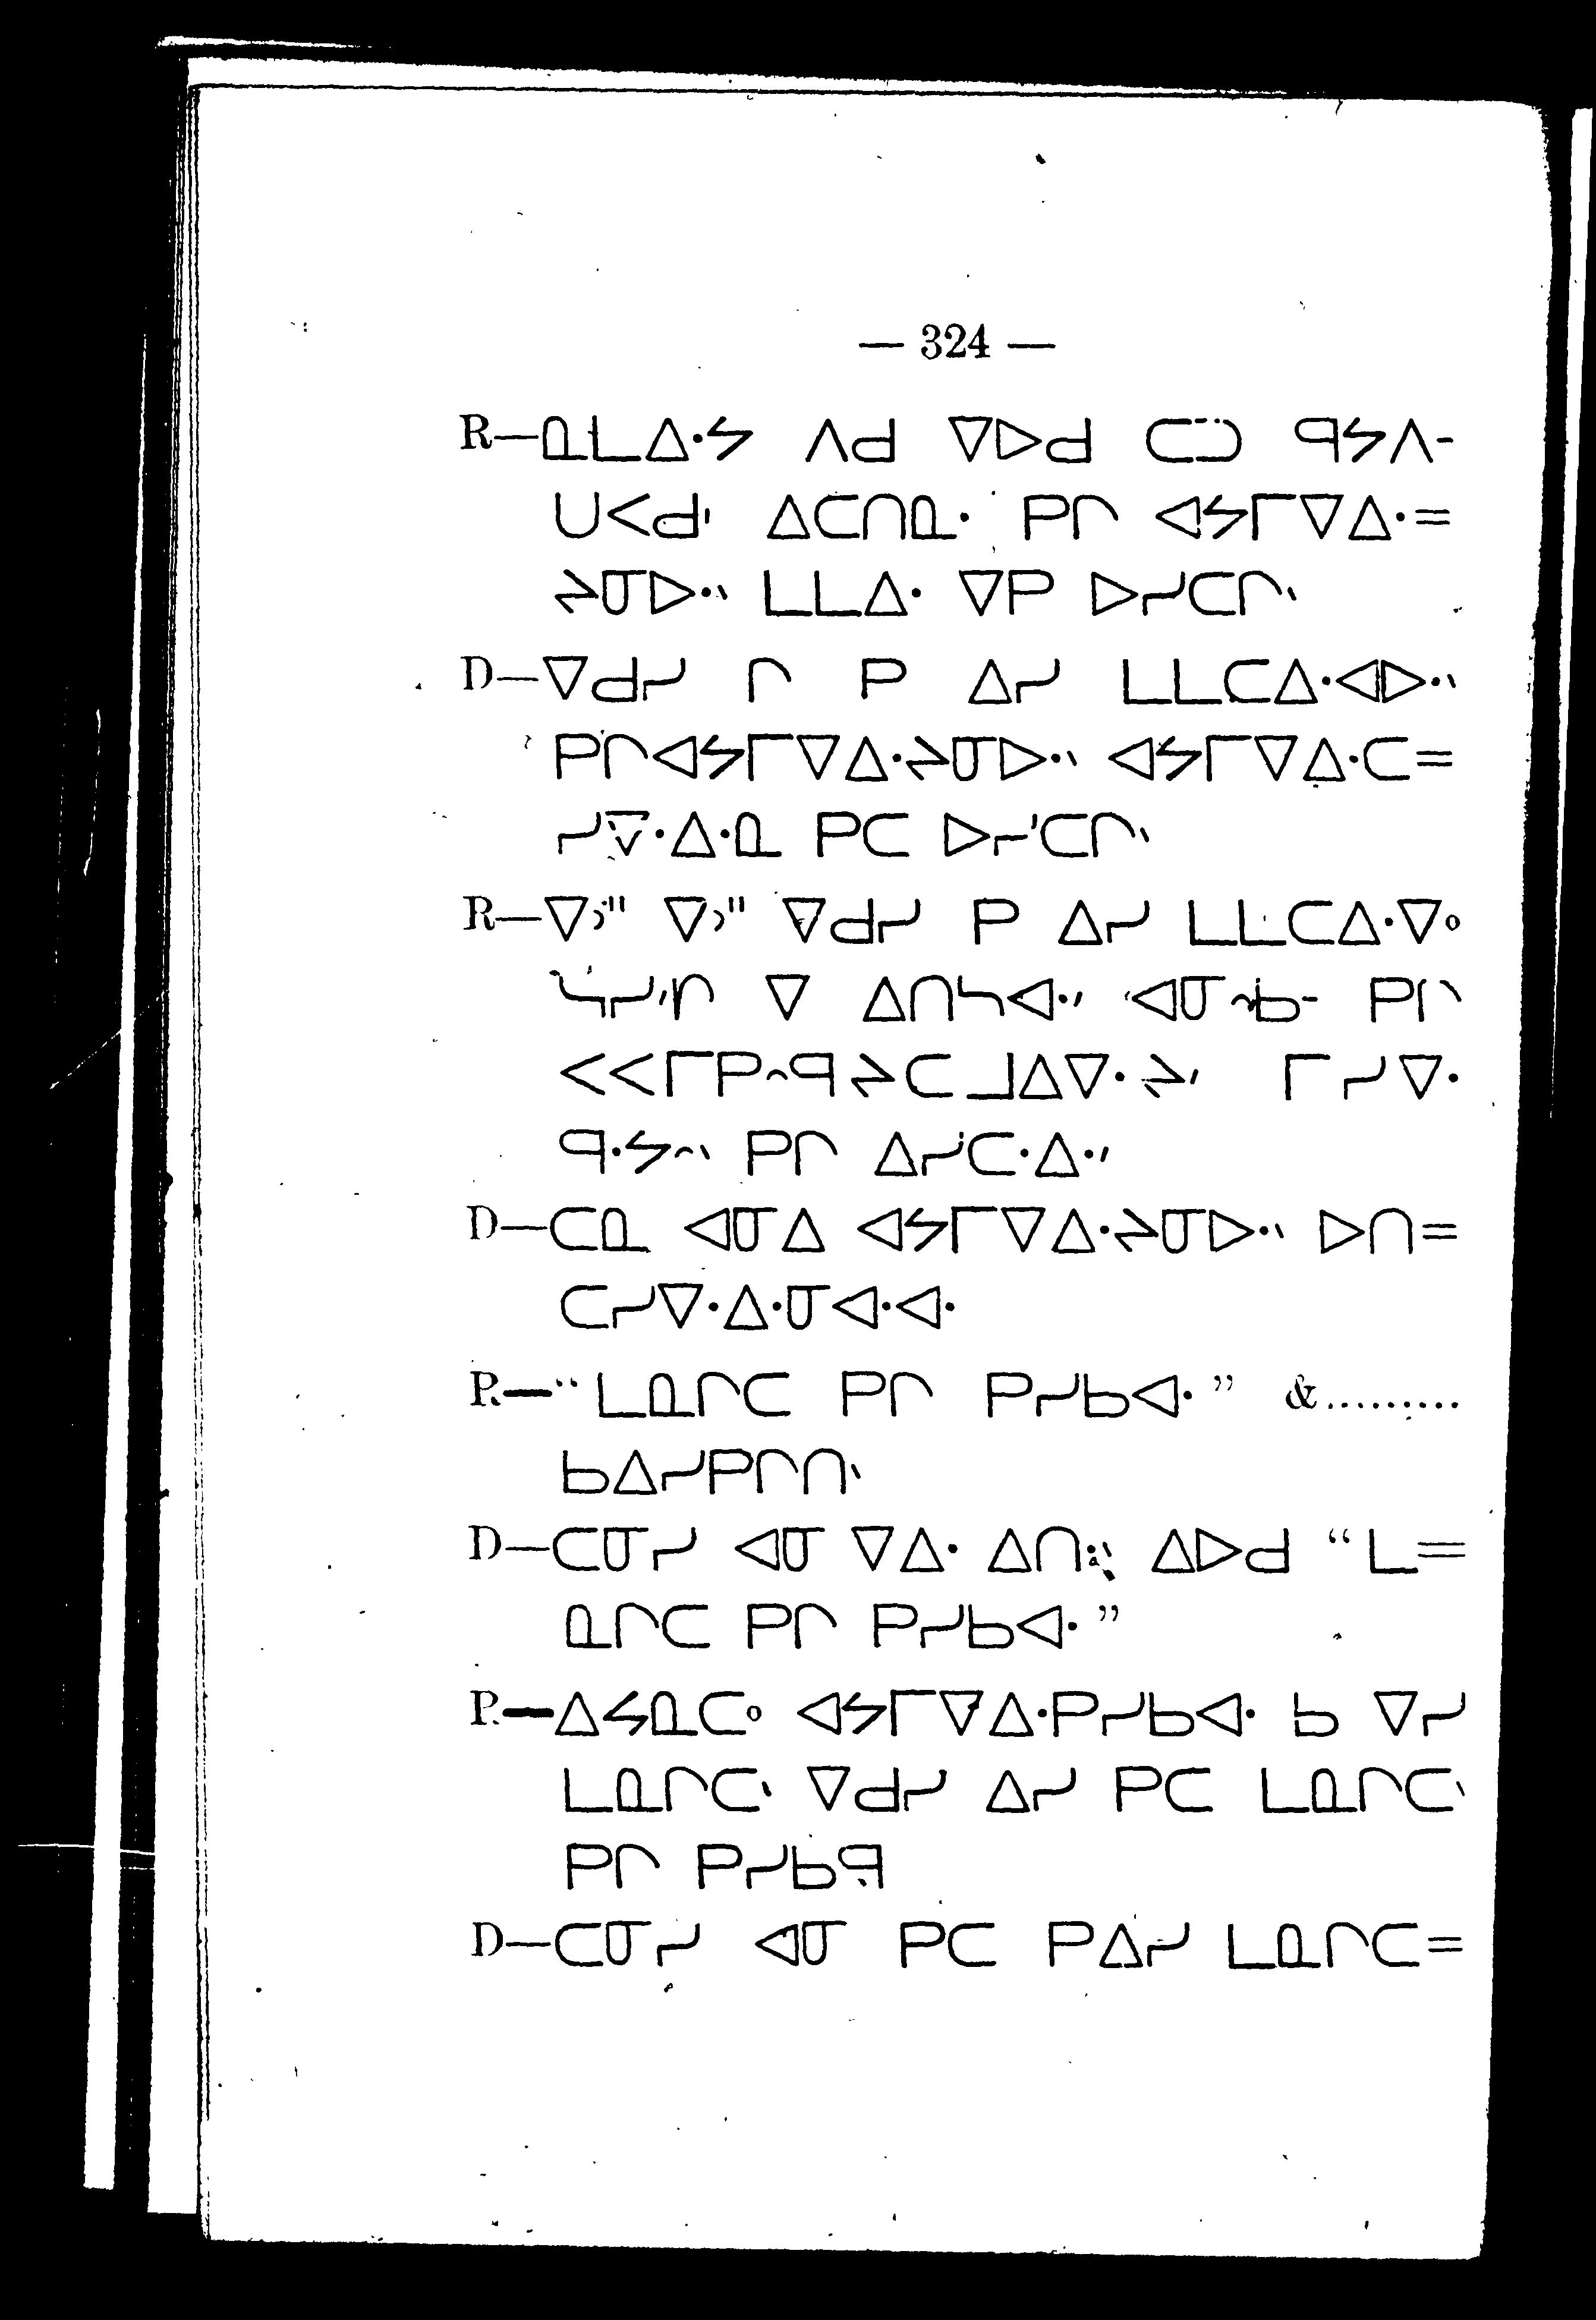 — 324 —
R—ᓇᒪᐃᐧᔭ ᐱᑯ ᐁᐅᑯ ᑕᑐ ᑫᔭᐱ-
ᑌᐸᑯᑊ ᐃᑕᑎᓇᐧ ᑭᒋ ᐊᔭᒥᐁᐃᐧ=
ᔨᓂᐅᐧᐠ ᒪᒪᐃᐧ ᐁᑭ ᐅᓯᑕᒋᐠ
D—ᐁᑯᓯ ᒋ ᑭ ᐃᓯ ᒪᒪᑕᐃᐧᐊᐅᐧᐠ
ᑭᒋᐊᔭᒥᐁᐃᐧᔨᓂᐅᐧᐠ ᐊᔭᒥᐁᐃᐧᑕ=
ᓯᐁᐧᐃᐧᓇ ᑭᑕ ᐅᓯᑕᒋᐠ
R—ᐁᐣ" ᐁᐣ" ᐁᑯᓯ ᑭ ᐃᓯ ᒪᒪᑕᐃᐧᐁᐤ
ᓴᓯᐟᒋ ᐁ ᐃᑎᓴᐊᐧᐟ ᐊᓂᐢᑲ- ᑭᒋ
ᐸᐸᒥᑭᐢᑫᔨᑕᒧᐃᐁᐧᔨᐟ ᒥᓯᐁᐧ
ᑫᐧᔭᐢᐠ ᑭᒋ ᐃᓯᑕᐧᐃᐧᐟ
D—ᑕᓇ ᐊᓂᐃ ᐊᔭᒥᐁᐃᐧᔨᓂᐅᐧᐠ ᐅᑎ=
ᑕᓯᐁᐧᐃᐧᓂᐊᐧᐊᐧ
R—“ ᒪᓇᒋᑕ ᑭᒋ ᑭᓯᑲᐊᐧ ” &.........
ᑲᐃᓯᑭᒋᑎᐠ
D—ᑕᓂᓯ ᐊᓂ ᐁᐃᐧ ᐃᑎᐧᐠ ᐃᐅᑯ “ ᒪ=
ᓇᒋᑕ ᑭᒋ ᑭᓯᑲᐊᐧ ”
R—ᐃᔕᓇᑕᐤ ᐊᔭᒥᐁᐃᐧᑭᓯᑲᐊᐧ ᑲ ᐁᓯ
ᒪᓇᒋᑕᐠ ᐁᑯᓯ ᐃᓯ ᑭᑕ ᒪᓇᒋᑕᐠ
ᑭᒋ ᑭᓯᑲᑫ
D—ᑕᓂᓯ ᐊᓂ ᑭᑕ ᑭᐃᓯ ᒪᓇᒋᑕ=